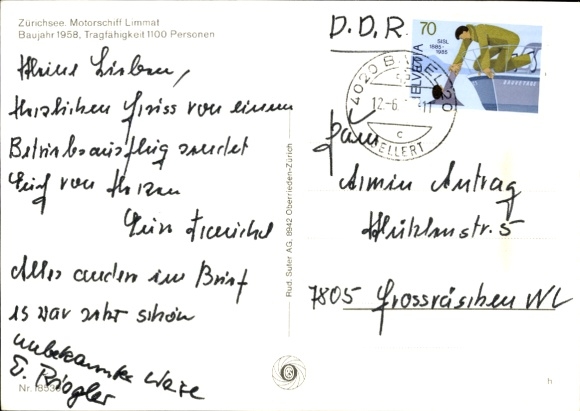 Zürichsee: Motorschiff Limmat
Baujahr 1958, Tragfähigkeit 1100 Personen
Meine Lieben,
Herzlichen Gruss von einem
Betriebsausflug sendet
Euch von Herzen
Euer
Alles andere im Brief
es war sehr schön
unbekannter weise
E. Riegler
Nr.
Rud. Suter AG, 8942 Oberrieden-Zürich
D.D.R.
70
SISL
1885-
1985
HELVETIA
4020 BASEL
12-6
-11
C
GELLERT
Fam
Armin Antrag
Hützlenstr. 5
7805 Grossräschen NL
h